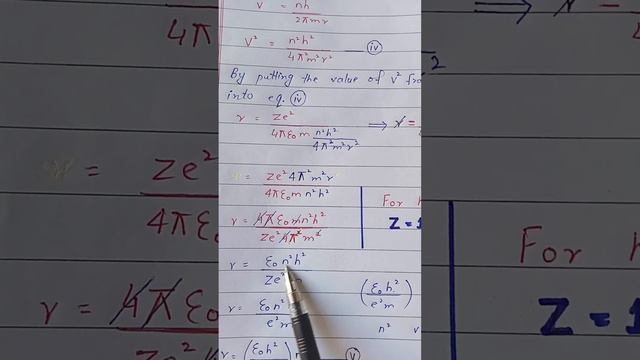 v = nh / 2πmr
v² = n²h² / 4π²m²r² — (iv)
By putting the value of v² fro
into eq. (iv)
r = Ze² / 4πε₀m n²h² / 4π²m²r² ⟹ r =
= Ze² 4π²m²r / 4πε₀m n²h²
r = 4πε₀mn²h² / Ze² 4π²m²
For h
Z = 1
r = ε₀n²h² / Ze²
r = ε₀n² / e²m
(ε₀h² / e²m)
n²
r = (ε₀h² (v)